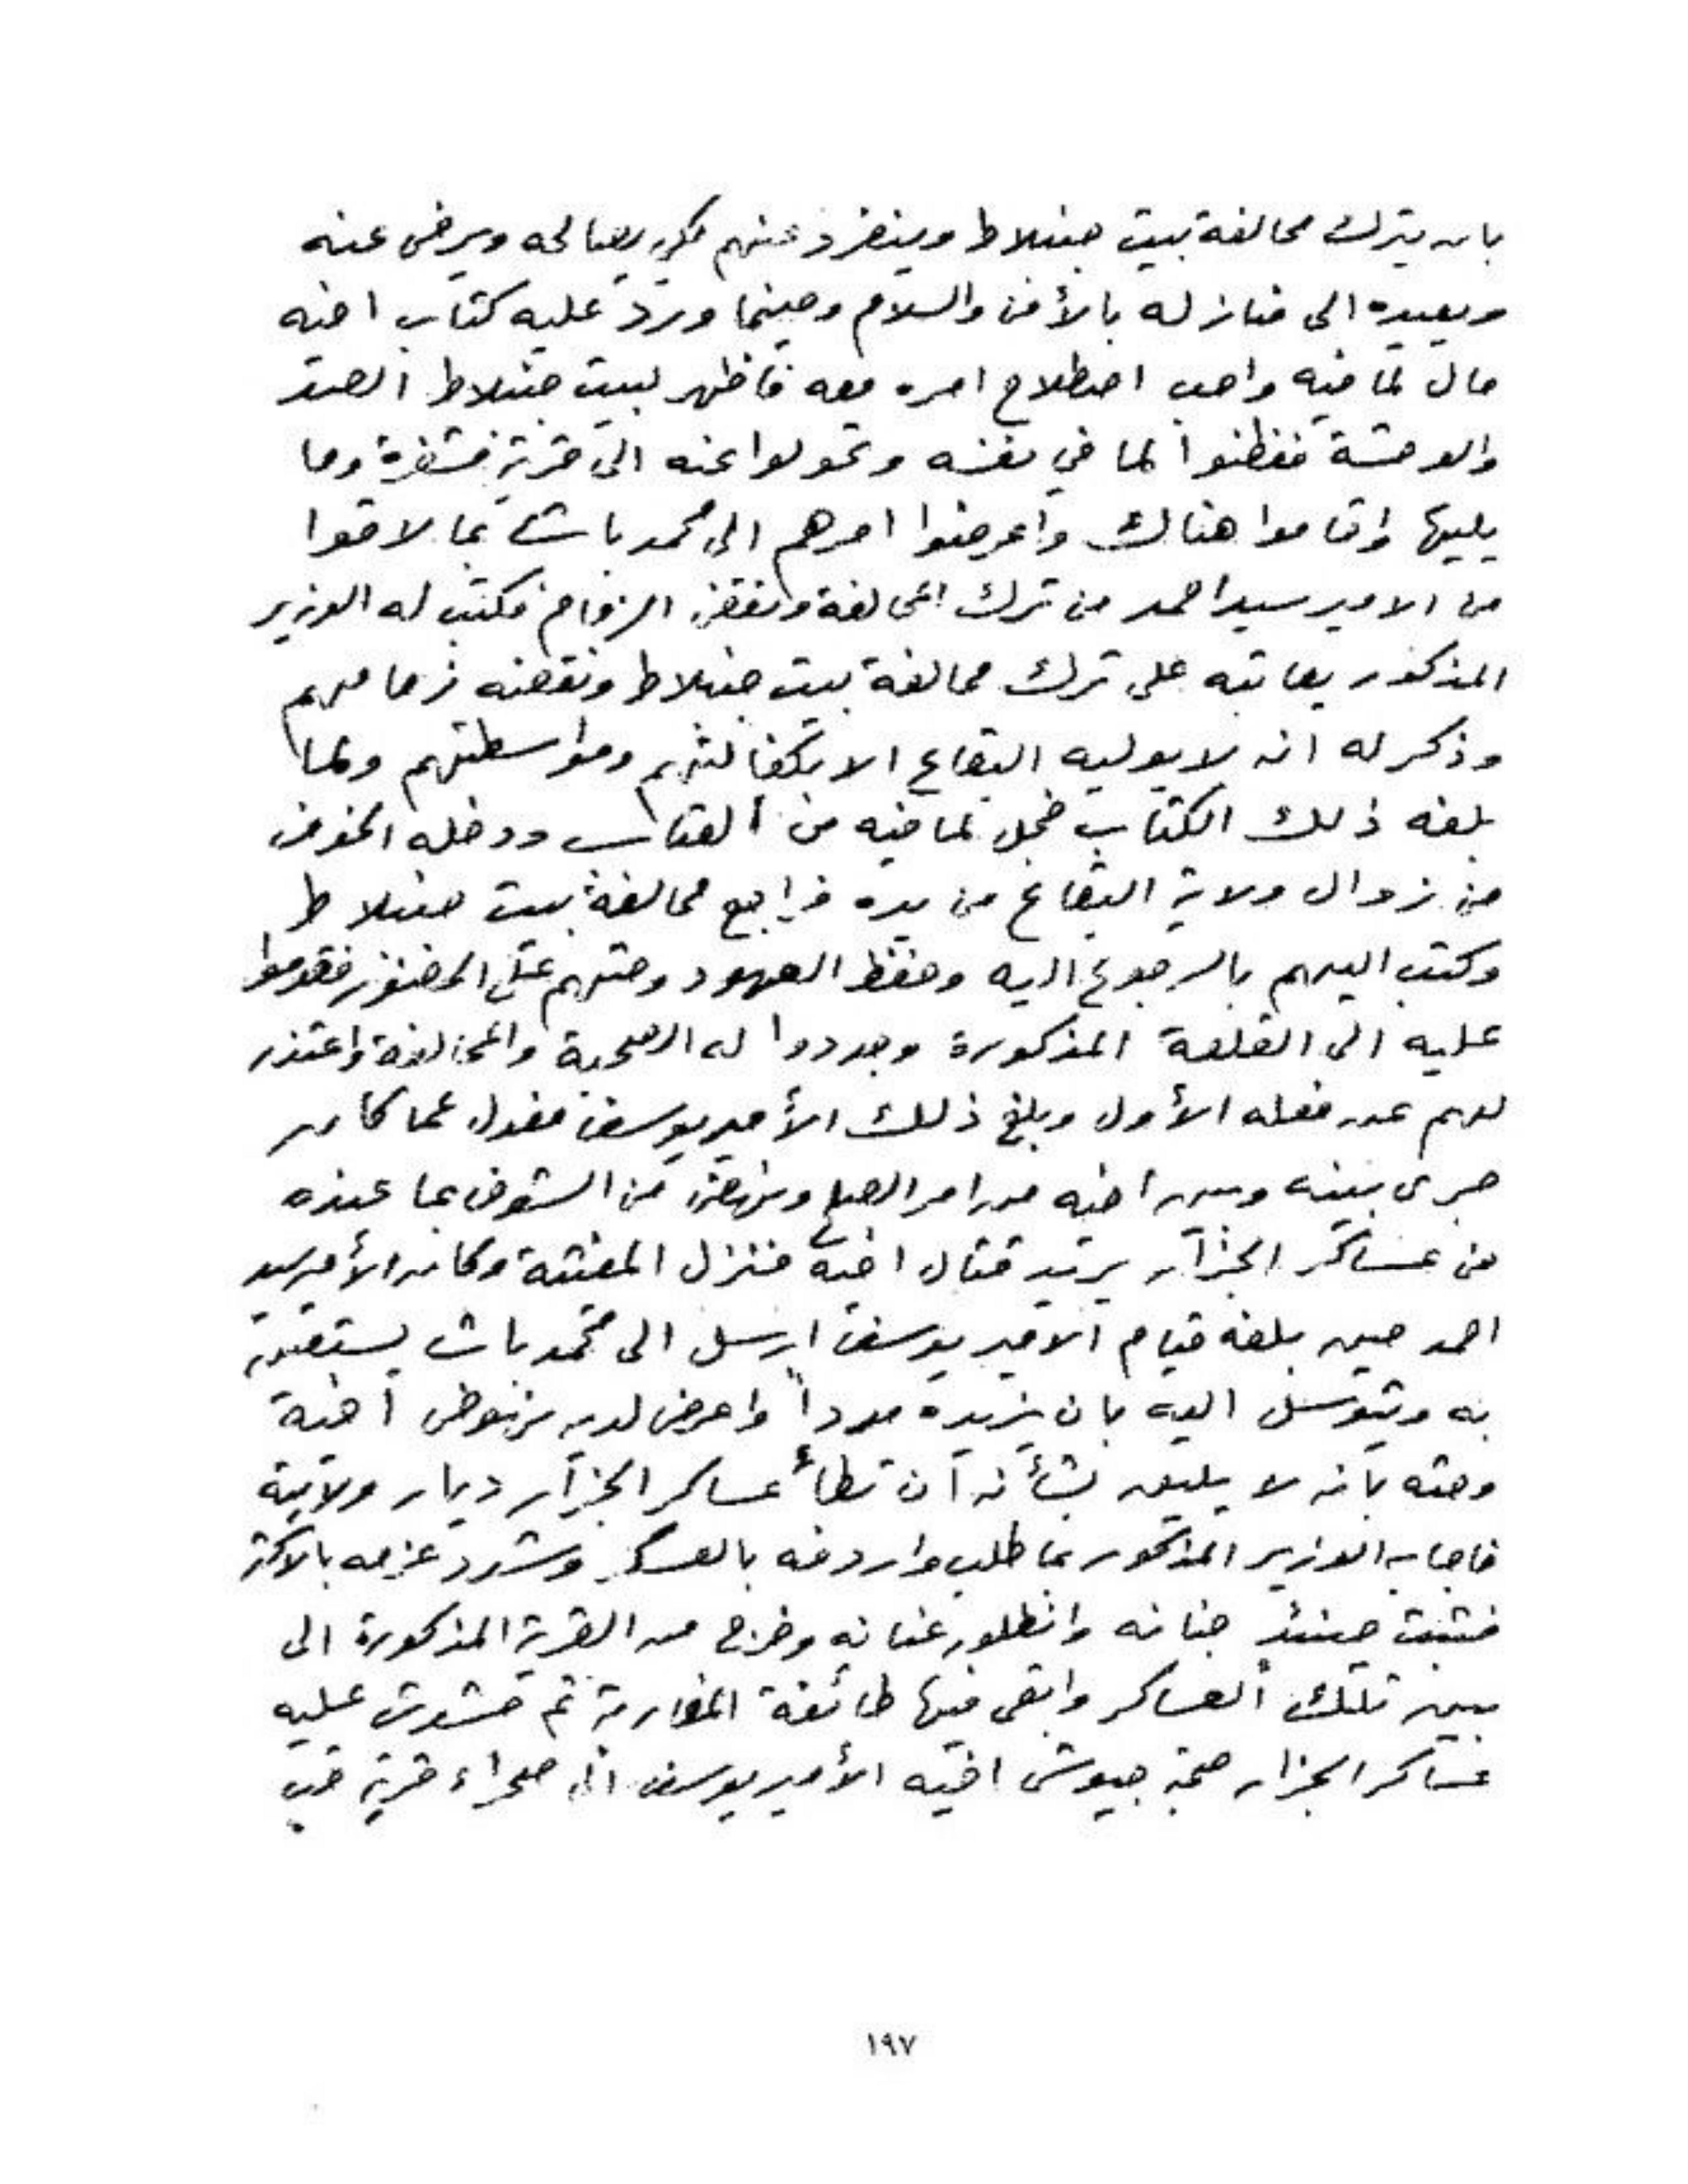 بان يترك محالفة بيت جنبلاط وينفرد عنهم لكي يصالحه ويرضى عنه
ويعيده الى منازله بالأمن والسلام وحينما ورد عليه كتاب اخيه
مال لما فيه واحب اصطلاح امره معه فاظهر لبيت جنبلاط الصد
والوحشة ففطنوا لما في نفسه وتحولوا عنه الى قرية مشغرة وما
يليها واقاموا هناك واعرضوا امرهم الى محمد باشا بما لاقوا
من الامير سيداحمد من ترك المحالفة ونقض الزمام فكتب له الوزير
المذكور يعاتبه على ترك محالفة بيت جنبلاط ونقضه زمامهم
وذكر له انه لا يوليه البقاع الا بكفالتهم ومواسطتهم ولما
بلغه ذلك الكتاب خجل لما فيه من العتاب ودخله الخوف
من زوال ولاية البقاع من يده فراجع محالفة بيت جنبلاط
وكتب اليهم بالرجوع اليه وحفظ العهود وحثهم على الحضور فقدموا
عليه الى القلعة المذكورة وجددوا له الصحبة والمحالفة واعتذر
لهم عن فعله الأول وبلغ ذلك الأمير يوسف فعدل عما كان
جرى بينه وبين اخيه من امر الصلح ونهض من الشوف بما عنده
من عساكر الجزار يريد قتال اخيه فنزل المغيثة وكان الأمير سيد
احمد حين بلغه قيام الامير يوسف ارسل الى محمد باشا يستغيث
به ويتوسل اليه بان يزيده مدداً واعرض لديه نهوض اخيه
وحثه بأنه لا يليق بشأنه ان تطأ عساكر الجزار ديار ولايته
فاجابه الوزير المذكور بما طلب واردفه بالعسكر وشدد عزمه بالاكثر
فثبت حينئذ جنانه وانطلق عنانه وخرج من القرية المذكورة الى
بين تلك العساكر وابقى فيها طائفة المغاربة ثم حشدت عليه
عساكر الجزار صحبة جيوش اخيه الأمير يوسف الى صحراء قرية قب
١٩٧